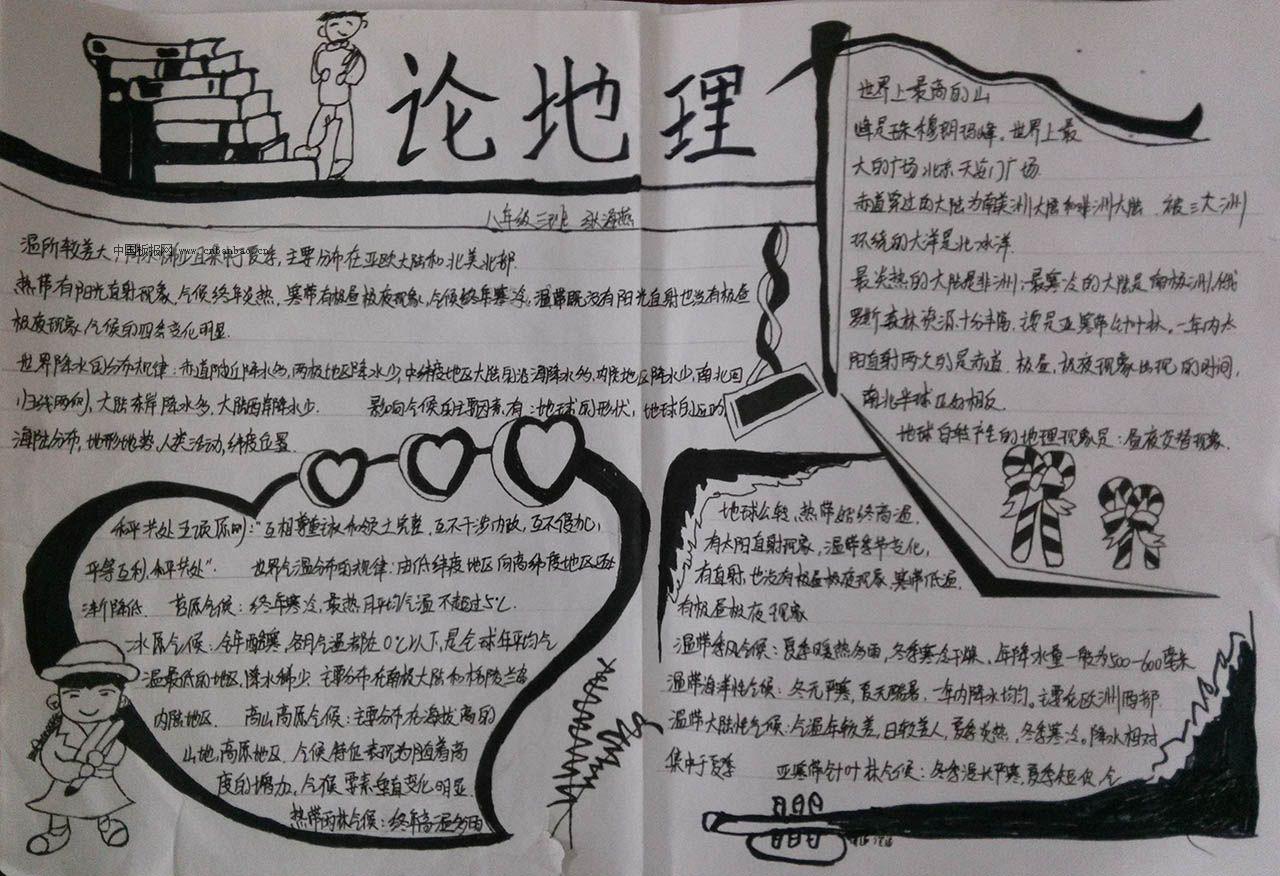 论地理
八年级三班
中国板报网 www.cnbanbao.cn
温 较差大, 且集中夏季,主要分布在亚欧大陆和北美北部.
热带有阳光直射现象,气候终年炎热.寒带有极昼极夜现象,气候终年寒冷,温带既没有阳光直射也没有极昼
极夜现象,气候的四季变化明显.
世界降水的分布规律:赤道附近降水多,两极地区降水少,中纬度地区大陆 沿海降水多,内陆地区降水少,南北回
归线两侧,大陆东岸降水多,大陆西岸降水少. 影响气候的主要因素有:地球的形状,地球的
海陆分布,地形地势,人类活动,纬度位置
和平共处五项原则:“互相尊重 和领土完整.互不干涉内政,互不侵犯,
平等互利,和平共处”. 世界气温分布的规律:由低纬度地区向高纬度地区逐
渐降低. 苔原气候:终年寒冷,最热月平均气温不超过5℃.
冰原气候:全年酷寒,各月气温都在0℃以下,是全球年平均气
温最低的地区,降水稀少.主要分布在南极大陆和格陵兰岛
内陆地区. 高山高原气候:主要分布在海拔高的
山地,高原地区.气候特征表现为随着高
度的增加,气候要素垂直变化明显.
热带雨林气候:终年高温多雨
世界上最高的山
峰是珠穆朗玛峰.世界上最
大的广场北京天安门广场.
赤道穿过的大陆为南美洲大陆和非洲大陆.被三大洲
环绕的大洋是北冰洋.
最炎热的大陆是非洲;最寒冷的大陆是南极洲,俄
罗斯森林资源十分丰富,主要是亚寒带针叶林.一年内太
阳直射两次的是赤道.极昼,极夜现象出现的时间,
南北半球正好相反.
地球自转产生的地理现象是:昼夜交替现象.
地球公转,热带始终高温.
有太阳直射现象,温带季节变化,
有直射,也没有极昼极夜现象 寒带低温.
有极昼极夜现象
温带季风气候:夏季暖热多雨,冬季寒冷干燥.年降水量一般为500-600毫米
温带海洋性气候:冬无严寒,夏无酷暑.一年内降水均匀。主要在欧洲西部.
温带大陆性气候:气温年较差,日较差大,夏季炎热,冬季寒冷,降水相对
集中于夏季 亚寒带针叶林气候:冬季漫长严寒,夏季短促,气